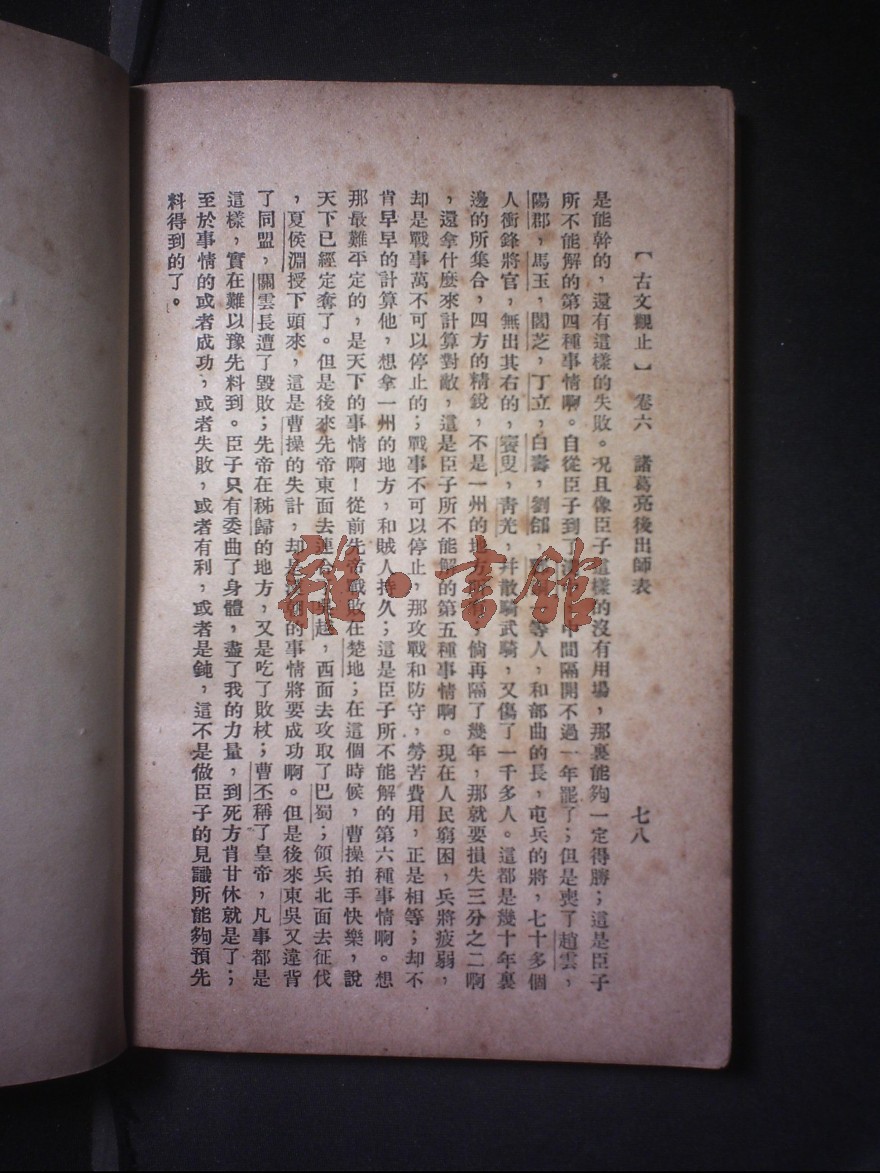 【古文觀止】 卷六 諸葛亮後出師表 七八
是能幹的，還有這樣的失敗。况且像臣子這樣的沒有用場，那裏能夠一定得勝；這是臣子
所不能解的第四種事情啊。自從臣子到了漢中，中間隔開不過一年罷了；但是喪了趙雲，
陽郡，馬玉，閻芝，丁立，白壽，劉郃，等人，和部曲的長，屯兵的將，七十多個
人衝鋒將官，無出其右的，賨叟，青羌，幷散騎武騎，又傷了一千多人。這都是幾十年裏
邊的所集合，四方的精銳，不是一州的地方所，倘再隔了幾年，那就要損失三分之二啊
，還拿什麼來計算對敵，這是臣子所不能解的第五種事情啊。現在人民窮困，兵將疲弱，
却是戰事萬不可以停止的；戰事不可以停止，那攻戰和防守，勞苦費用，正是相等；却不
肯早早的計算他，想拿一州的地方，和賊人持久；這是臣子所不能解的第六種事情啊。想
那最難平定的，是天下的事情啊！從前先帝戰敗在楚地；在這個時候，曹操拍手快樂，說
天下已經定奪了。但是後來先帝東面去連合吳越，西面去攻取了巴蜀；領兵北面去征伐
，夏侯淵授下頭來，這是曹操的失計，却是漢朝的事情將要成功啊。但是後來東吳又違背
了同盟，關雲長遭了毀敗；先帝在秭歸的地方，又是吃了敗杖；曹丕稱了皇帝，凡事都是
這樣，實在難以豫先料到。臣子只有委曲了身體，盡了我的力量，到死方肯甘休就是了；
至於事情的或者成功，或者失敗，或者有利，或者是鈍，這不是做臣子的見識所能夠預先
料得到的了。
雜·書館